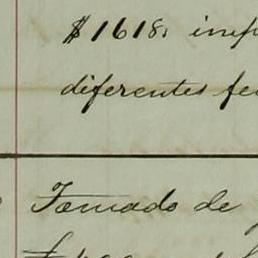 $1618. imp
diferentes fe
Tomado de